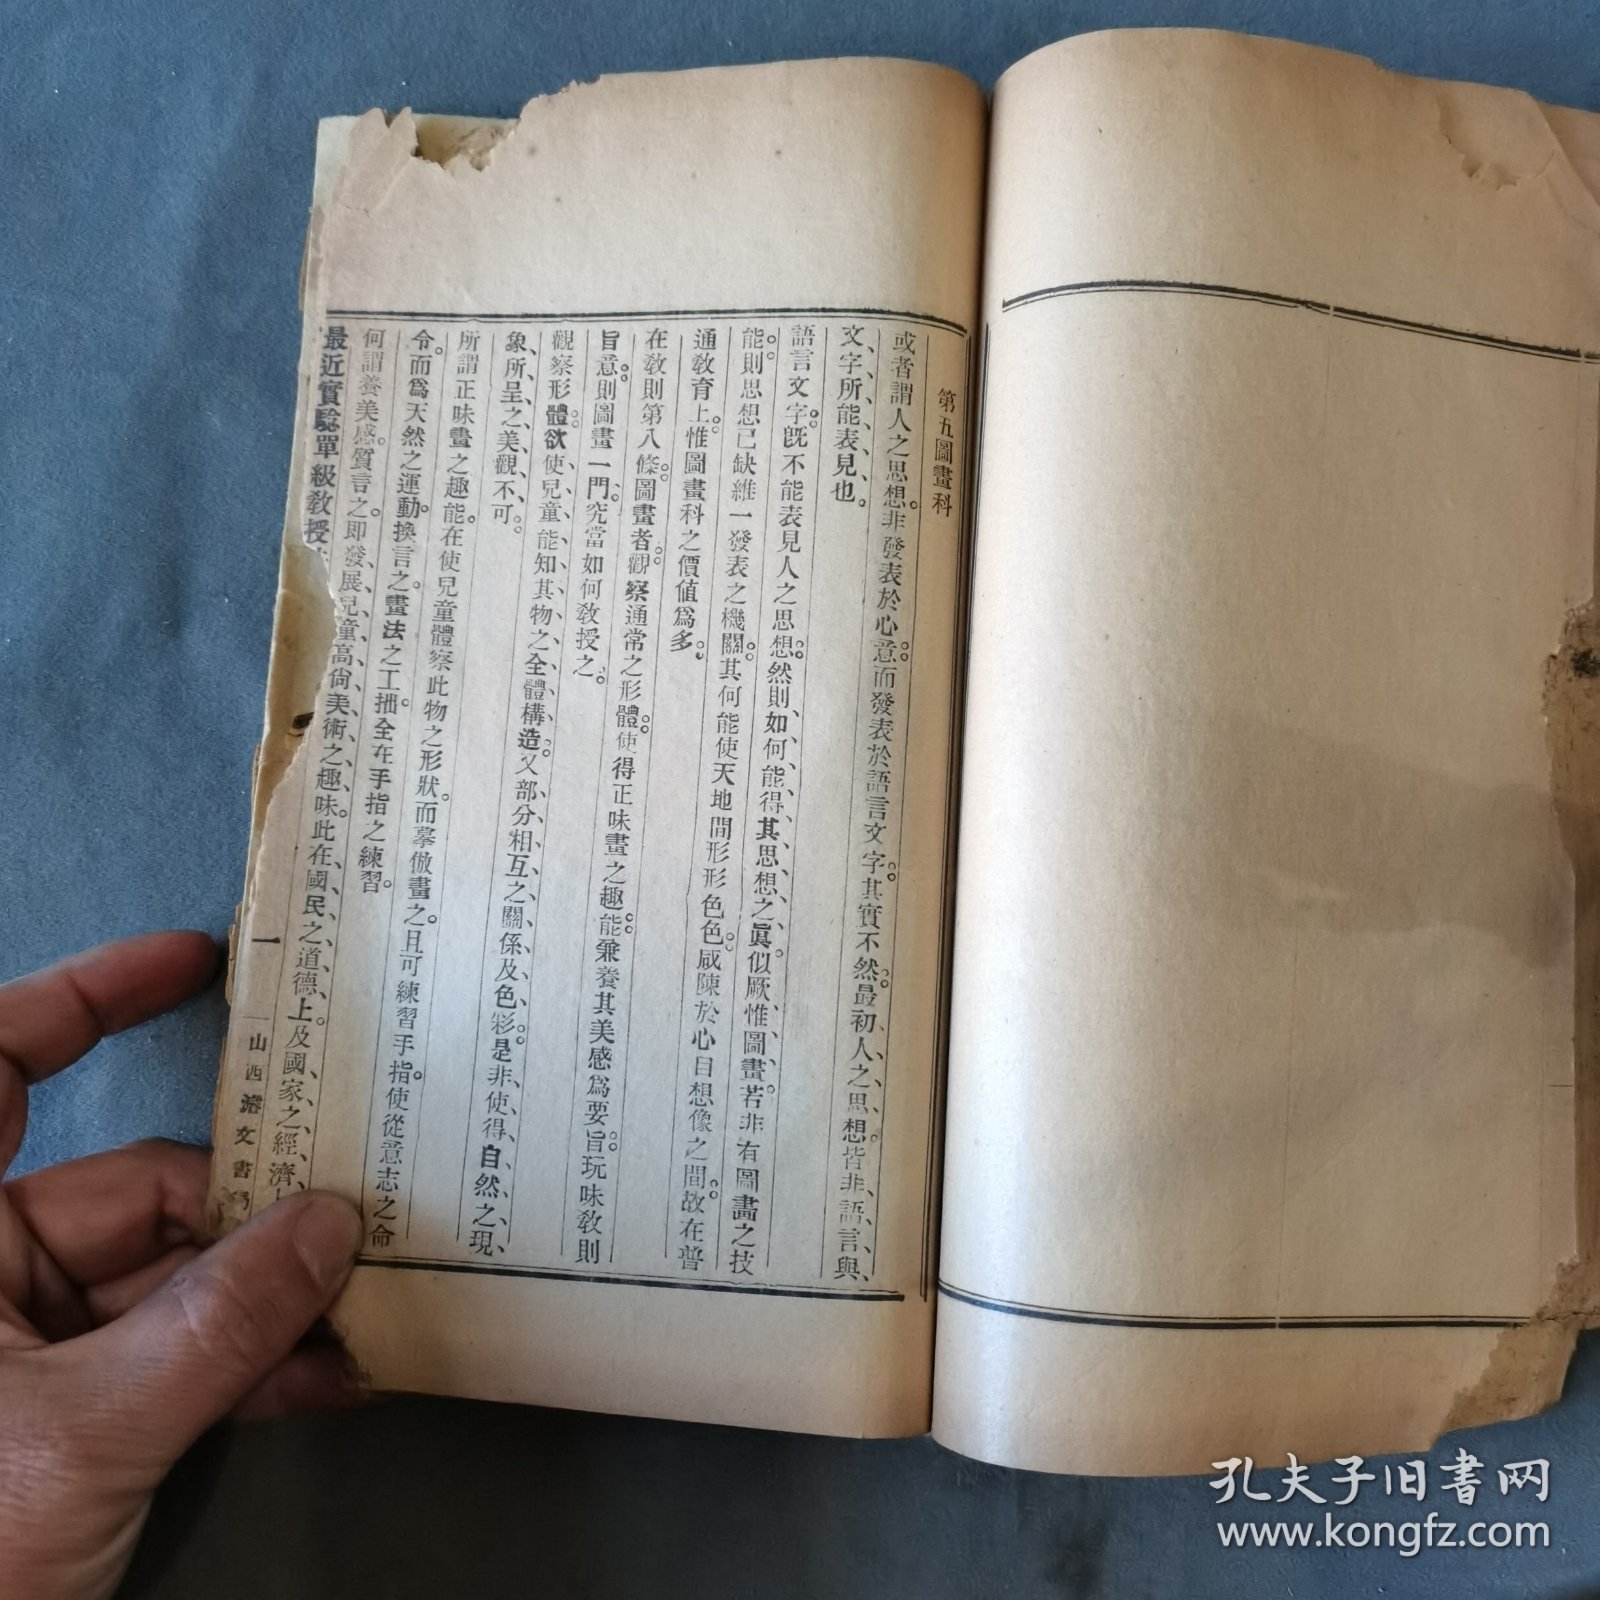 第五圖畫科
或者謂人之思想。非發表於心意。而發表於語言文字。其實不然。最初人之思想。皆非語言與
文字所能表見也。
語言文字。旣不能表見人之思想。然則如何能得其思想之眞似。厥惟圖畫。若非有圖畫之技
能。則思想已缺維一發表之機關。其何能使天地間形形色色。咸陳於心目想像之間。故在普
通敎育上。惟圖畫科之價值爲多。
在敎則第八條。圖畫者。觀察通常之形體。使得正味畫之趣能。兼養其美感爲要旨。玩味敎則
旨意。則圖畫一門。究當如何敎授之。
觀察形體。欲使兒童能知其物之全體構造。又部分相互之關係及色彩。是非使得自然之現
象所呈之美觀不可。
所謂正味畫之趣能。在使兒童體察此物之形狀。而摹倣畫之。且可練習手指。使從意志之命
令。而爲天然之運動。換言之。畫法之工拙。全在手指之練習。
何謂養美感。質言之。卽發展兒童高尙美術之趣味。此在國民之道德上。及國家之經濟
最近實驗單級敎授
一
山西濬文書局
孔夫子旧書网
www.kongfz.com